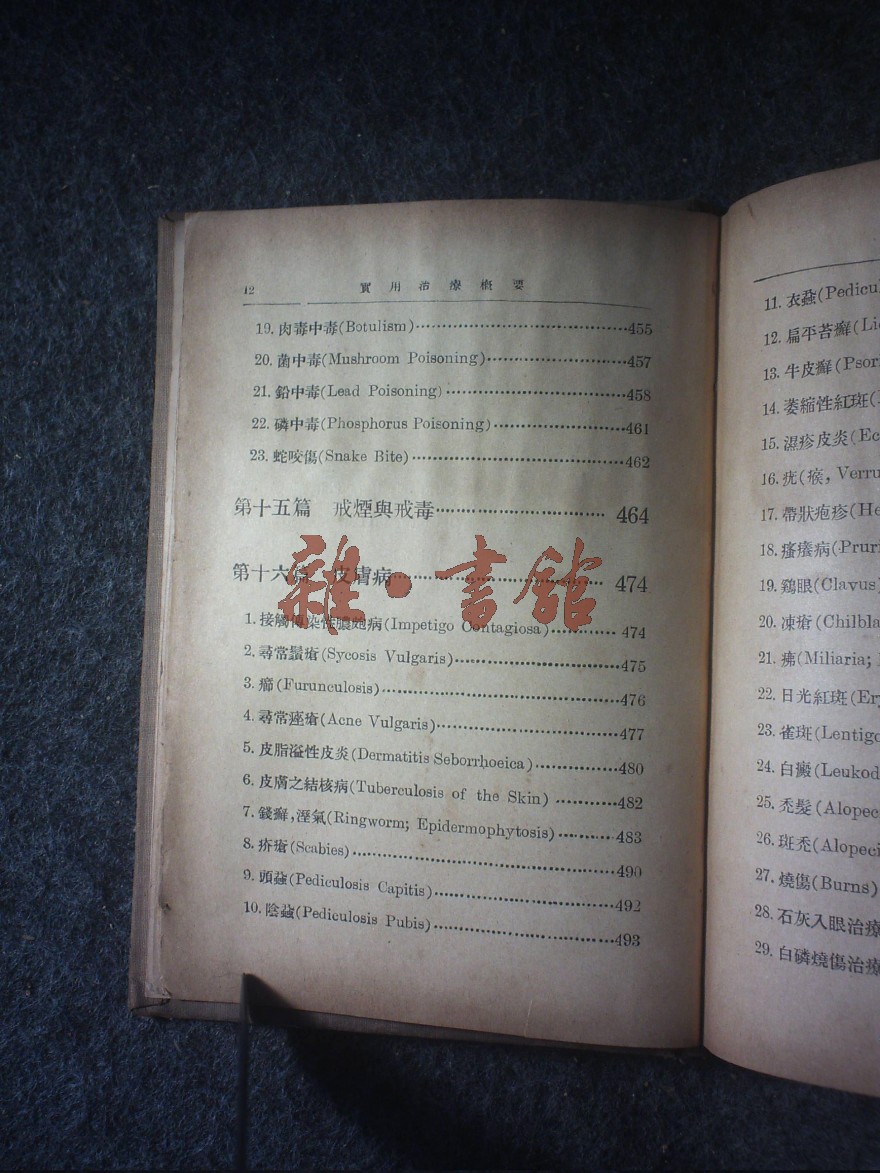 12 實用治療概要
19. 肉毒中毒(Botulism)……455
20. 菌中毒(Mushroom Poisoning)……457
21. 鉛中毒(Lead Poisoning)……458
22. 磷中毒(Phosphorus Poisoning)……461
23. 蛇咬傷(Snake Bite)……462
第十五篇 戒煙與戒毒……464
第十六篇 皮膚病……474
1. 接觸傳染性膿皰病(Impetigo Contagiosa)……474
2. 尋常鬚瘡(Sycosis Vulgaris)……475
3. 癤(Furunculosis)……476
4. 尋常痤瘡(Acne Vulgaris)……477
5. 皮脂溢性皮炎(Dermatitis Seborrhoeica)……480
6. 皮膚之結核病(Tuberculosis of the Skin)……482
7. 錢癬，溼氣(Ringworm; Epidermophytosis)……483
8. 疥瘡(Scabies)……490
9. 頭蝨(Pediculosis Capitis)……492
10. 陰蝨(Pediculosis Pubis)……493
雜·書館
11. 衣蝨(Pedicul
12. 扁平苔癬(Li
13. 牛皮癬(Psor
14. 萎縮性紅斑(
15. 濕疹皮炎(Ec
16. 疣(瘊，Verru
17. 帶狀疱疹(He
18. 瘙癢病(Pruri
19. 鷄眼(Clavus)
20. 凍瘡(Chilbla
21. (Miliaria;
22. 日光紅斑(Ery
23. 雀斑(Lentigo
24. 白癜(Leukod
25. 禿髮(Alopec
26. 斑禿(Alopeci
27. 燒傷(Burns)
28. 石灰入眼治療
29. 白磷燒傷治療